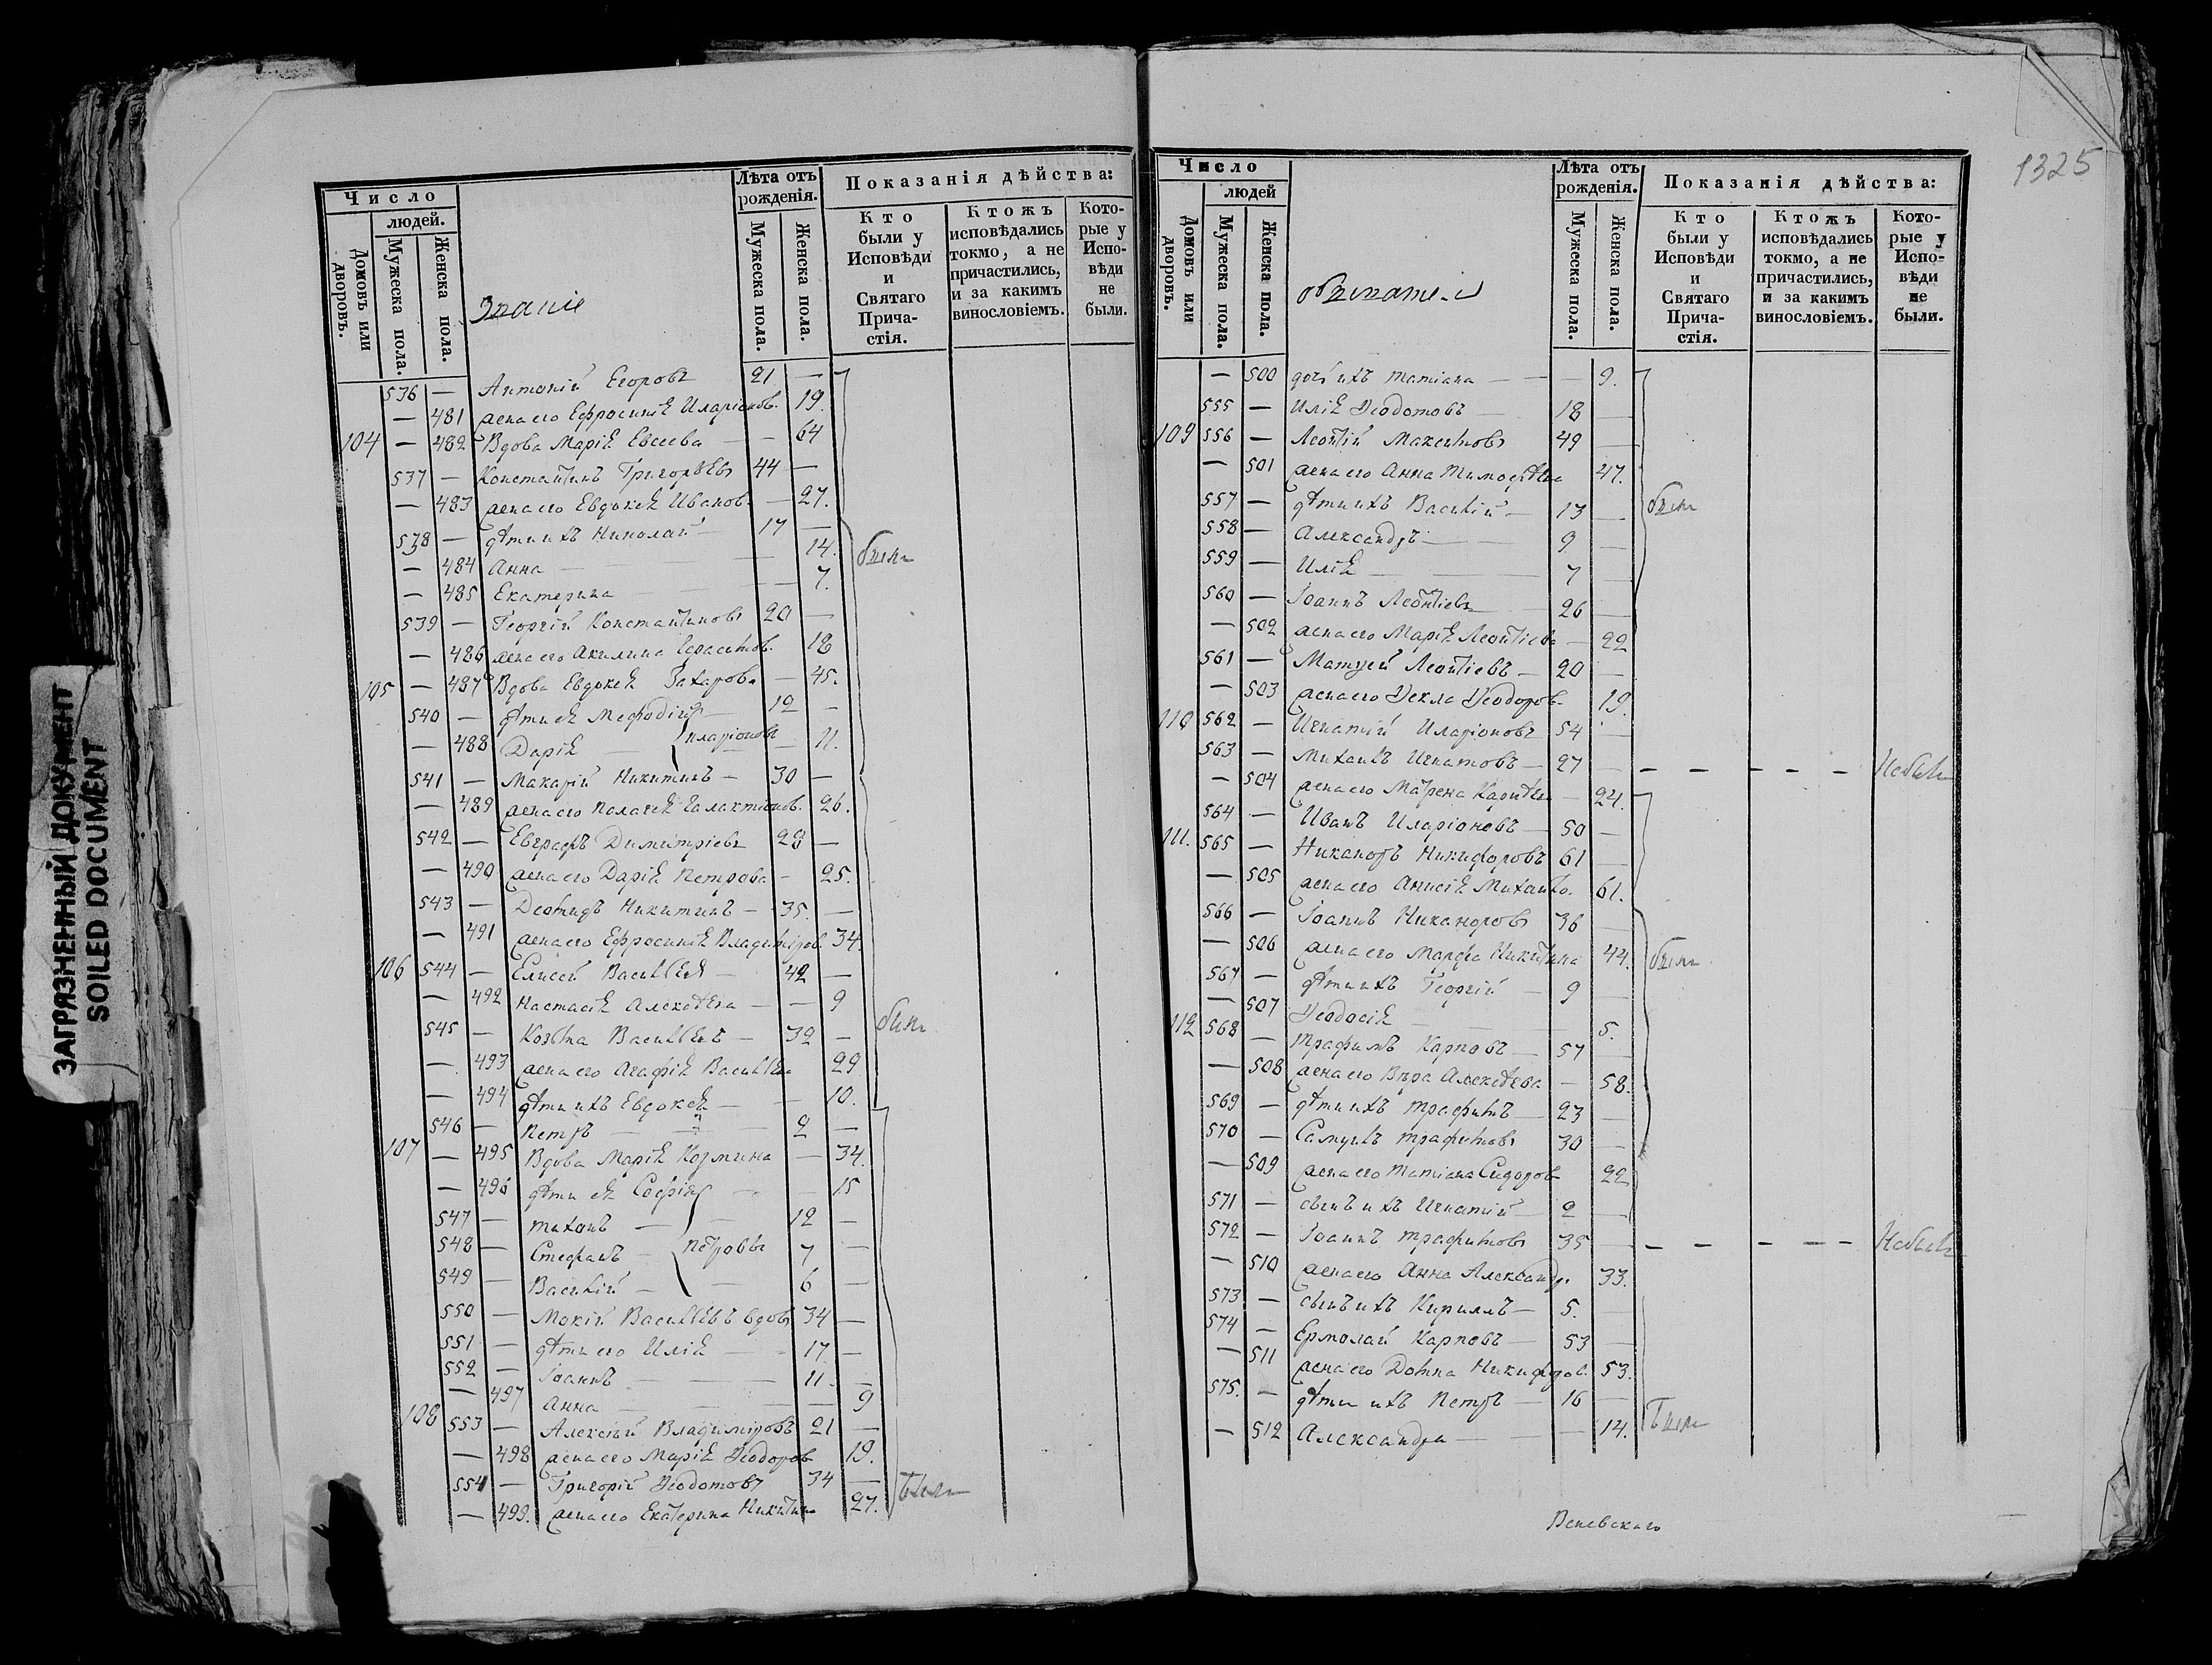 ЗАГРЯЗНЕННЫЙ ДОКУМЕНТ
SOILED DOCUMENT
Число
людей.
Домовъ или дворовъ.
Мужеска пола.
Женска пола.
Званіе
Лѣта отъ рожденія.
Мужеска пола.
Женска пола.
Показанія дѣйства:
Кто были у Исповѣди и Святаго Прича-стія.
Ктожъ исповѣдались токмо, а не причастились, и за какимъ винословіемъ.
Кото-рые у Испо-вѣди не были.
536 — Антоній Егоровъ 21 —
— 481 жена его Ефросинія Иларіонов. 19.
104 — 482 Вдова Марія Евсеева — — 64
537 — Константинъ Григорьевъ 44 —
— 483 жена его Евдокія Иванов. — 27.
538 — дѣти ихъ Николай — 17 —
— 484 Анна — 14.
были
— 485 Екатерина — 7.
539 — Георгій Константиновъ 20 —
— 486 жена его Акилина Герасимов. 18
105 — 487 Вдова Евдокія Захарова — 45.
540 — дѣти ея Мефодій — 12 —
— 488 Дарія — Иларіоновы 11.
541 — Макарій Никитинъ — 30 —
— 489 жена его Пелагея Галактіонов. 26.
542 — Евграфъ Димитріевъ 28 —
— 490 жена его Дарія Петрова — 25.
543 — Демидъ Никитинъ — 35. —
— 491 жена его Ефросинія Владиміров. 34.
106 544 — Елисей Васильевъ — 42 —
— 492 Настасія Алексѣева — — 9
545 — Козьма Васильевъ — 32 —
были
— 493 жена его Агафія Васильева 29
— 494 дѣти ихъ Евдокія — — 10.
546 — Петръ — 2 —
107 — 495 Вдова Марія Козмина — 34.
— 496 дѣти ея Софія — — 15
547 — Тихонъ — 12 —
548 — Стефанъ — Петровы 7 —
549 — Василій — 6 —
550 — Мокій Васильевъ вдовъ 34 —
551 — дѣти его Илія — 17 —
552 — Іоаннъ — 11. —
— 497 Анна — — 9
108 553 — Алексѣй Владиміровъ 21 —
— 498 жена его Марія Ѳеодоров 19.
554 — Григорій Ѳеодотовъ 34 —
были
— 499. жена его Екатерина Никитина 27.
1325
Число
людей
Домовъ или дворовъ.
Мужеска пола.
Женска пола.
обыватели
Лѣта отъ рожденія.
Мужеска пола.
Женска пола.
Показанія дѣйства:
Кто были у Исповѣди и Святаго Прича-стія.
Ктожъ исповѣдались токмо, а не причастились, и за какимъ винословіемъ.
Кото-рые у Испо-вѣди не были.
— 500 дочь ихъ Татіана — — — 9.
555 — Илія Ѳеодотовъ — 18 —
109 556 — Леонтій Максимовъ 49 —
— 501 жена его Анна Тимофѣева 47.
557 — дѣти ихъ Василій — 13 —
были
558 — Александръ — 9 —
559 — Илія — 7 —
560 — Іоаннъ Леонтіевъ — 26 —
— 502 жена его Марія Леонтіева — 22
561 — Матѳей Леонтіевъ — 20 —
— 503 жена его Ѳекла Ѳеодоров. 19.
110 562 — Игнатій Иларіоновъ 54 —
563 — Михаилъ Игнатовъ — 27 — — — — — — Небылъ
— 504 жена его Матрена — 24.
564 — Иванъ Иларіоновъ — 50 —
111. 565 — Никаноръ Никифоровъ 61 —
— 505 жена его Анисія Михайло. 61.
566 — Іоаннъ Никаноровъ 36 —
— 506 жена его Марфа Никитина 44.
были
567 — дѣти ихъ Георгій — 9 —
— 507 Ѳеодосія — 5.
112 568 — Трафимъ Карповъ — 57 —
— 508 жена его Вѣра Алексѣева — 58.
569 — дѣти ихъ Трафимъ — 23 —
570 — Самуилъ Трафимовъ 30 —
— 509 жена его Татіана Сидоров 22
571 — сынъ ихъ Игнатій — 2 —
572 — Іоаннъ Трафимовъ 35 — — — — — — Небылъ
— 510 жена его Анна Александр. 33.
573 — сынъ ихъ Кириллъ — 5. —
574 — Ермолай Карповъ — 53 —
— 511 жена его Домна Никифоров. 53.
575. — дѣти ихъ Петръ — 16 —
были
— 512 Александра — — — 14.
Веневскаго